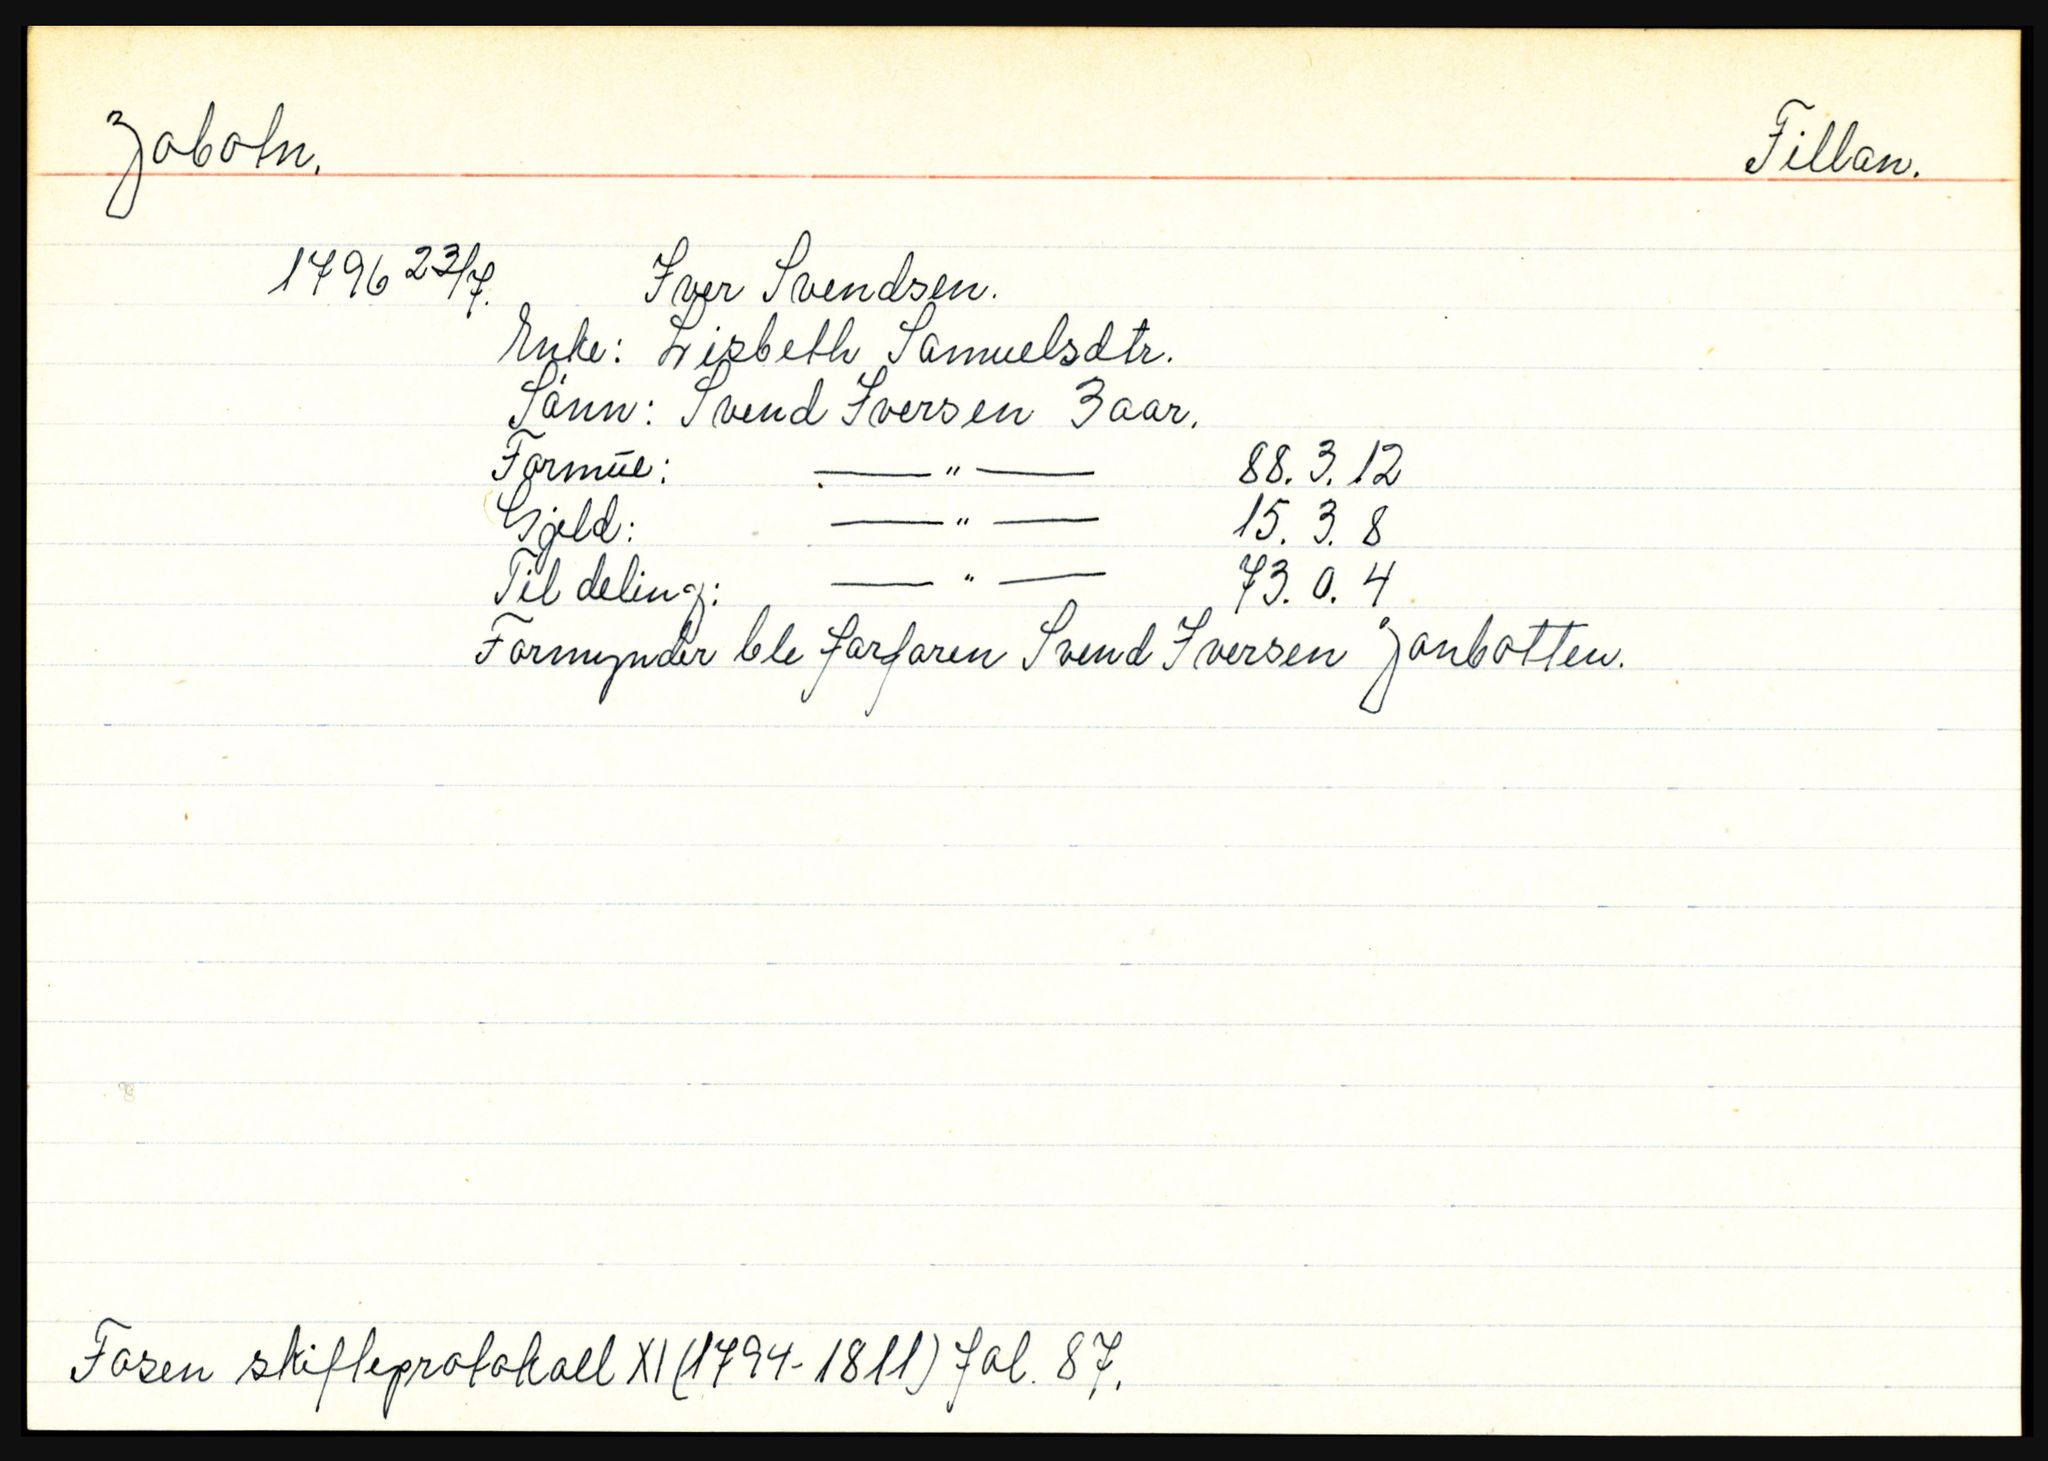 Jobotn. Fillan.
1796 23/7. Iver Svendsen.
Enke: Lisbeth Samuelsdtr.
Sønn: Svend Iversen 3 aar.
Formue: —— " —— 88. 3. 12
Gjeld: —— " —— 15. 3. 8
Til deling: —— " —— 73. 0. 4
Formynder ble farfaren Svend Iversen Jonbotten.
Fosen skifteprotokoll XI (1794-1811) fol. 87.